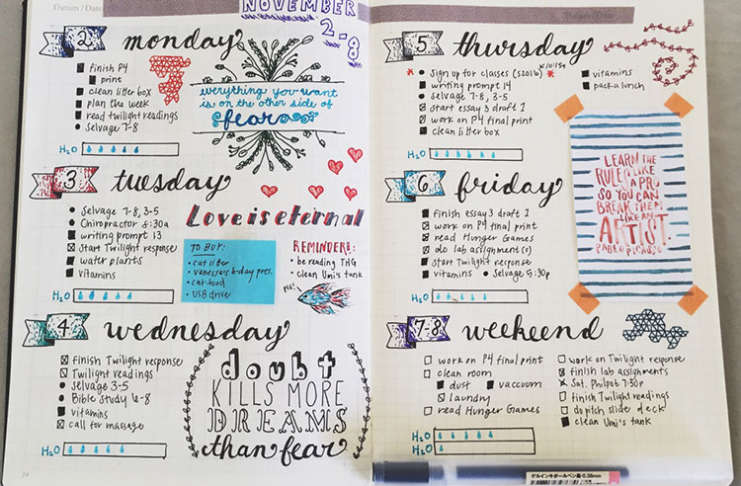 Datum / Date
NOVEMBER
2-8
2
monday
finish P4
print
clean litter box
plan the week
read twilight readings
Selvage 7-8
H2O
everything you want
is on the other side of
fear
3
tuesday
Selvage 7-8, 3-5
Chiropractor 6:30a
writing prompt 13
Start Twilight response
water plants
vitamins
H2O
Love is eternal
TO BUY:
cat litter
vanessa's b-day pres.
cat food
USB drive
REMINDERS:
be reading THG
clean Umi's tank
4
wednesday
finish Twilight response
Twilight readings
Selvage 3-5
Bible Study 6-8
vitamins
call for massage
H2O
doubt
KILLS MORE
DREAMS
than fear
5
thursday
Sign up for classes (S2016)
writing prompt 14
Selvage 7-8, 3-5
Start essay 3 draft 1
work on P4 final print
clean litter box
vitamins
pack a lunch
H2O
LEARN THE
RULES LIKE
A PRO
SO YOU CAN
BREAK THEM
LIKE AN
ARTIST
PABLO PICASSO
6
friday
finish essay 3 draft 1
work on P4 final print
read Hunger Games
do lab assignment(s)
Start Twilight response
vitamins
Selvage 5:30p
H2O
7-8
weekend
work on P4 final print
clean room
dust
vaccoom
laundry
read Hunger Games
work on Twilight response
finish lab assignments
Sat. Philpot 7:30p
finish Twilight readings
do pitch slide deck
clean Umi's tank
H2O
H2O
ゲルインキボールペン 0.38mm